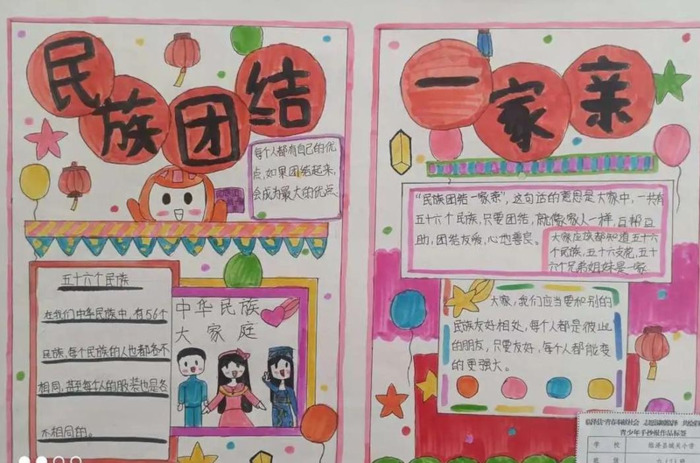 民族团结
一家亲
每个人都有自己的优
点,如果团结起来,
会成为最大的优点.
五十六个民族
在我们中华民族中,有56个
民族,每个民族的人也都各不
相同,甚至每个人的服装也是各
不相同的。
中华民族
大家庭
“民族团结一家亲”,这句话的意思是大家中,一共有
五十六个民族,只要团结,就像家人一样,互帮互
助,团结友爱,心地善良。
大家庄族都知道五十六
个民族,五十六支花,五十
六个兄弟姐妹是一家
大家,我们应当要和别的
民族友好相处,每个人都是彼此
的朋友,只要友好,每个人都能变
的更强大。
青少年手抄报作品标签
学校